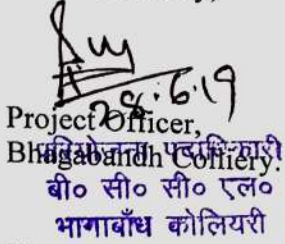 28.6.19
Project Officer,
Bhagabandh Colliery.
परियोजना पदाधिकारी
बी० सी० सी० एल०
भागाबाँध कोलियरी